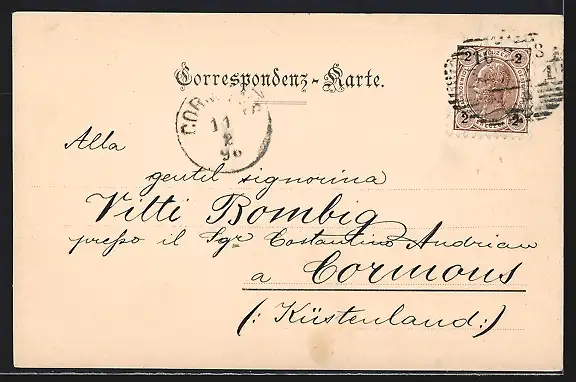 Correspondenz-Karte.
2 2
2 2
11
2
96
Alla
gentil signorina
Vitti Bombig
presso il Sgr Costantino Andrian
a Cormons
(: Küstenland :)